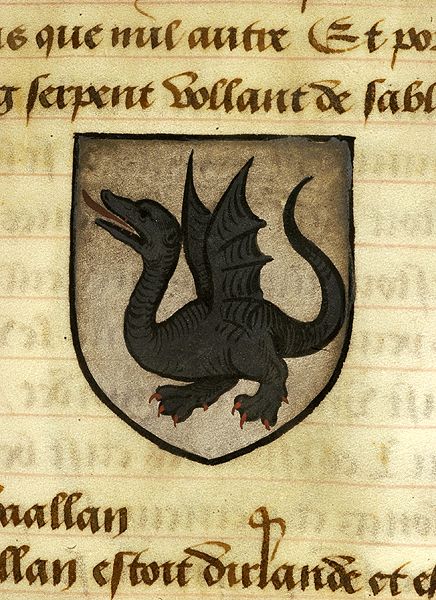 us que nul autre Et por
g serpent vollant de sabl
rallan
llan estoit dirlande et es